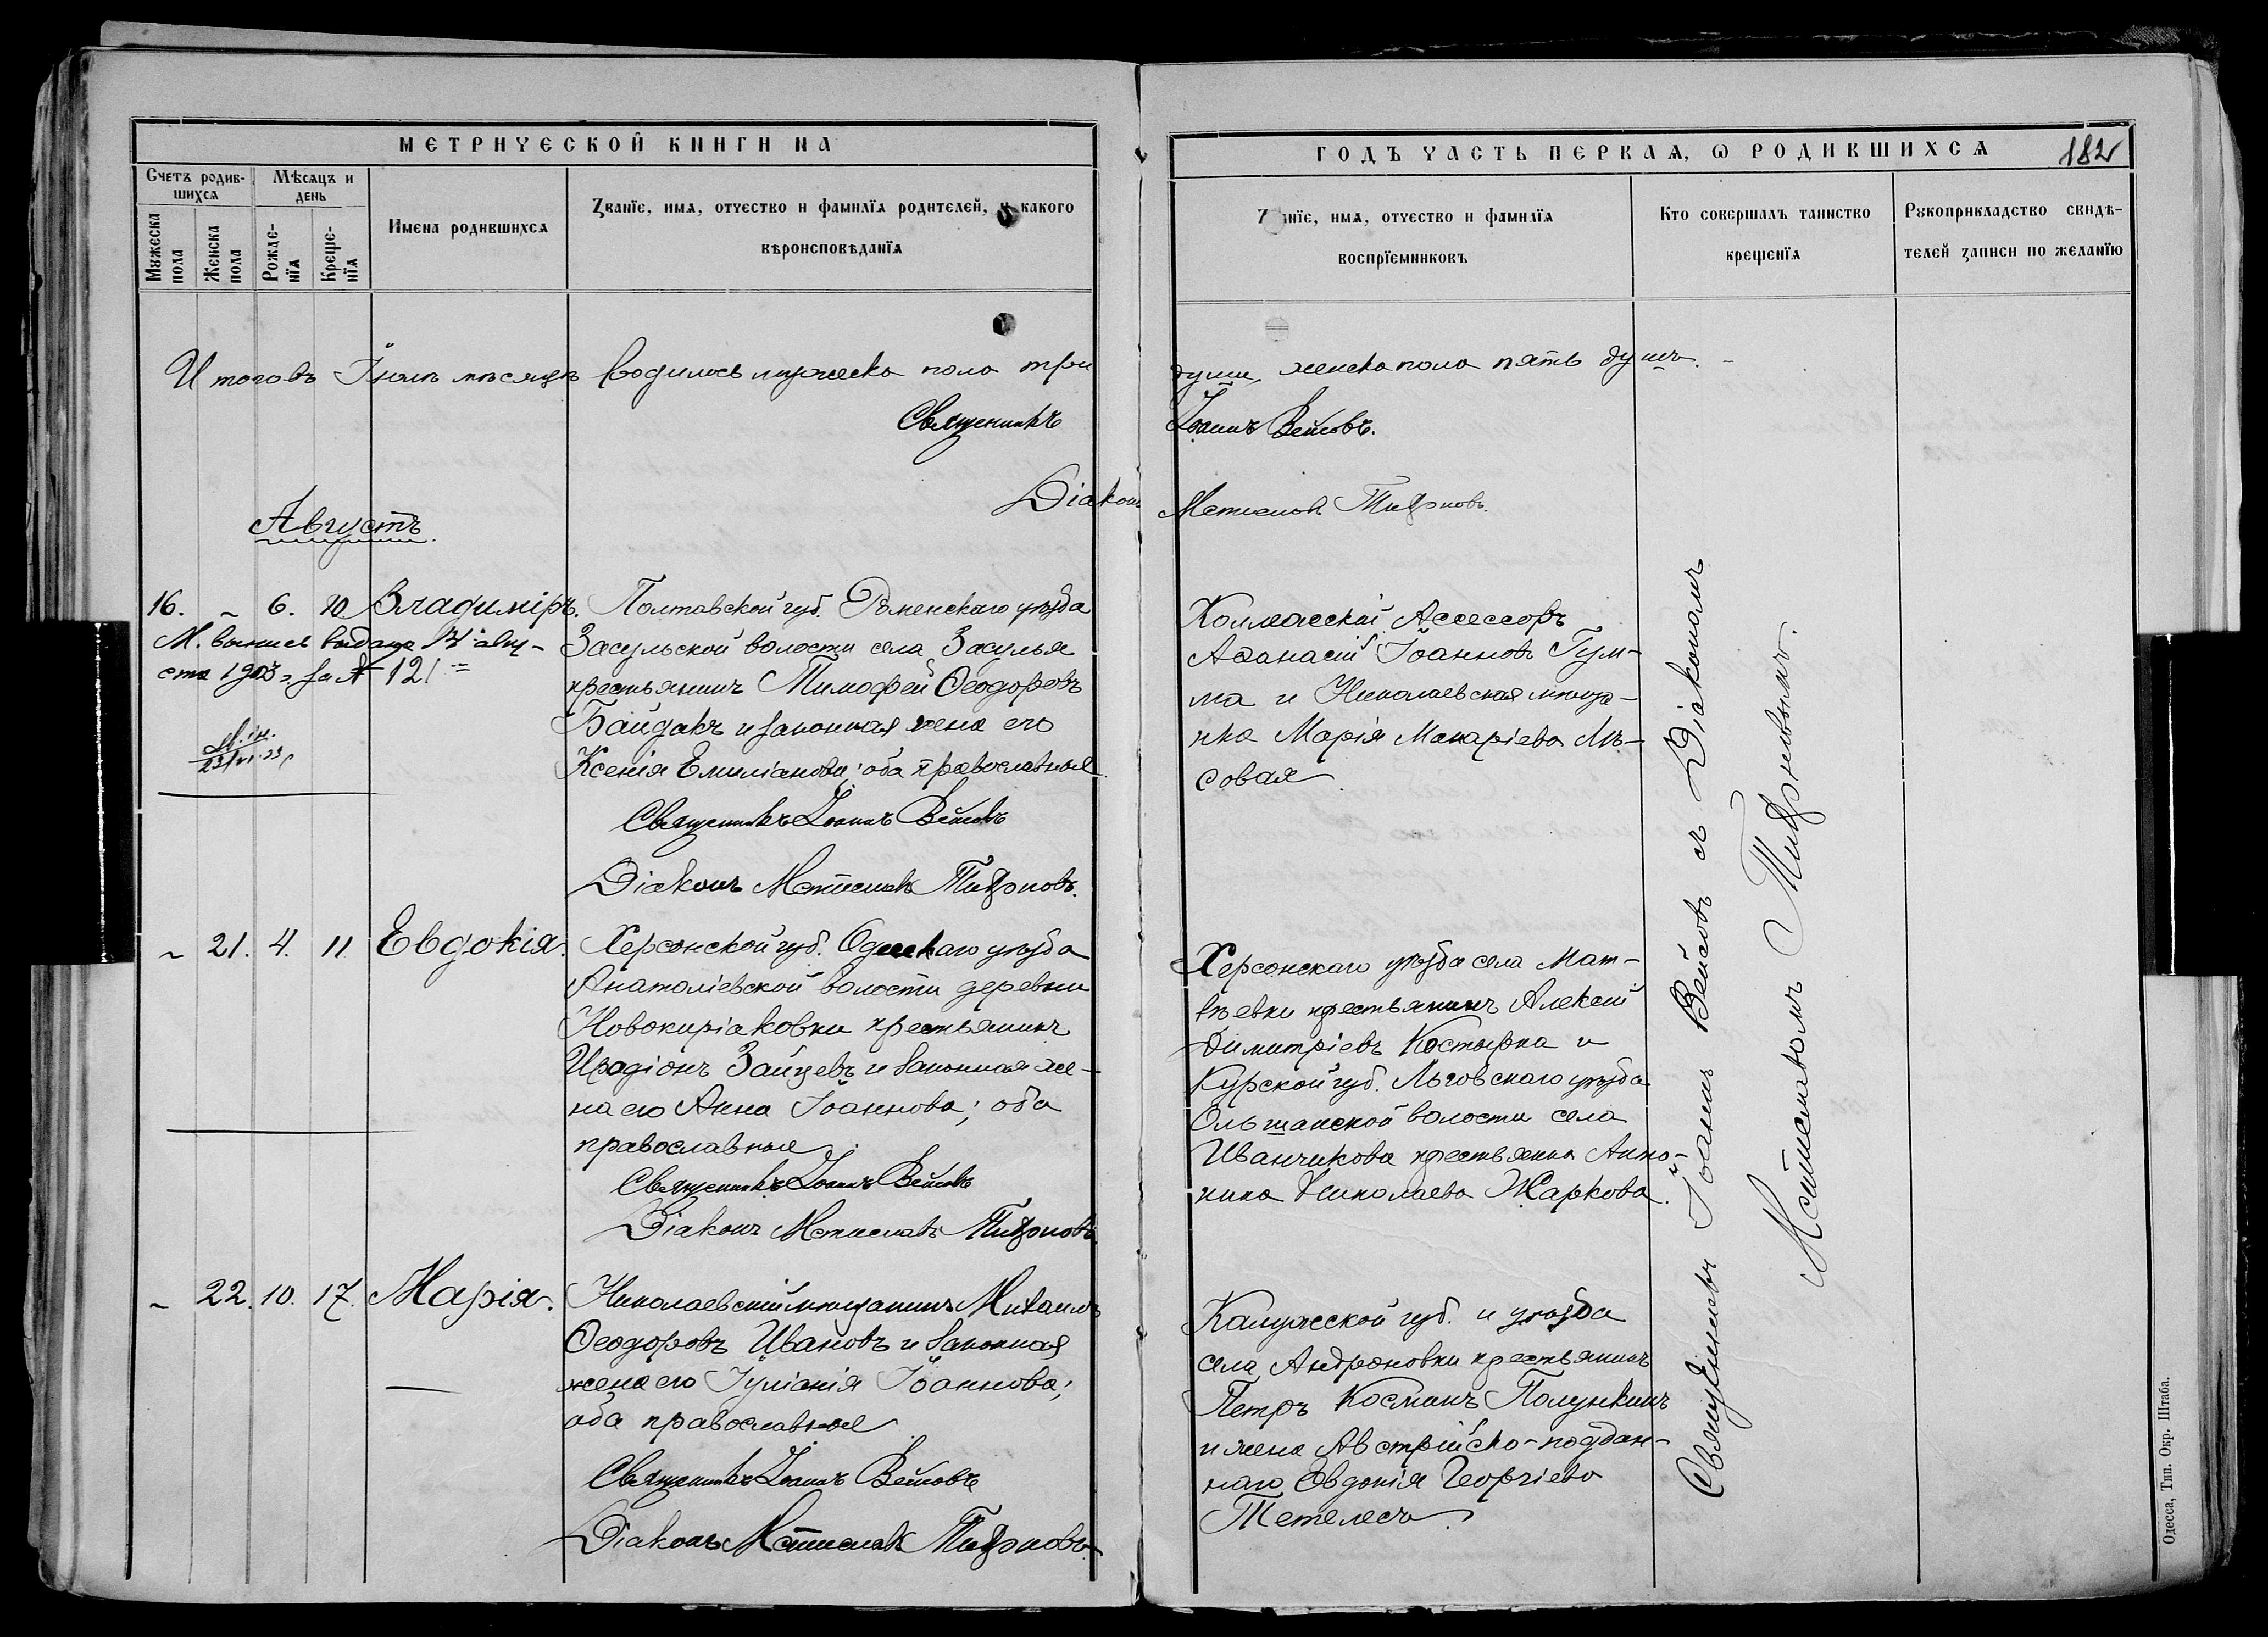 МЕТРИЧЕСКОЙ КНИГИ НА
Счетъ родив-
шихся
Мѣсяцъ и
день
Мужеска
пола
Женска
пола
Рожде-
нїя
Креще-
нїя
Имена родившихся
Званїе, имя, отчество и фамилїя родителей, и какого
вѣроисповѣданїя
Итого въ Іюлѣ мѣсяцѣ родилось мужеска пола три
Священникъ
Діаконъ
Августъ.
16. ~ 6. 10 Владиміръ. Полтавской губ. Роменскаго уѣзда
М. выпись выдана авгу-
ста 1903 г. за № 121 =
Засульской волости села Засулья
крестьянинъ Тимофей Ѳеодоровъ
Байдакъ и законная жена его
Ксенія Емиліанова; оба православные.
Священникъ Іоаннъ Вейсовъ
Діаконъ Мстиславъ
~ 21. 4. 11. Евдокія. Херсонской губ. Одесскаго уѣзда
Анатоліевской волости деревни
Новокиріаковки крестьянинъ
Иродіонъ Зайцевъ и законная же-
на его Анна Іоаннова; оба
православные
Священникъ Іоаннъ Вейсовъ
Діаконъ Мстиславъ
~ 22. 10. 17. Марія. Николаевскій мѣщанинъ Михаилъ
Ѳеодоровъ Ивановъ и законная
жена его Іуліанія Іоаннова;
оба православные
Священникъ Іоаннъ Вейсовъ
Діаконъ Мстиславъ
ГОДЪ ЧАСТЬ ПЕРВАЯ, Ѡ РОДИВШИХСЯ
182
Званїе, имя, отчество и фамилїя
воспрїемниковъ
Кто совершалъ таинство
крещенїя
Рукоприкладство свидѣ-
телей записи по желанїю
души, женска пола пять душъ. -
Іоаннъ Вейсовъ.
Мстиславъ
Коллежскій Ассессоръ
Аѳанасій Іоанновъ Гум-
ма и Николаевская мѣща-
нка Марія Макаріева Лѣ-
совая.
Херсонскаго уѣзда села Мат-
вѣевки крестьянинъ Алексій
Димитріевъ Костырка и
Курской губ. Льговскаго уѣзда
Ольшанской волости села
Иванчикова крестьянка Анто-
нина Николаева Жаркова.
Калужской губ. и уѣзда
села Андроновки крестьянинъ
Петръ Косминъ Полункинъ
и жена Австрійско-поддан-
наго Евдокія Георгіева
Тетелесъ.
Священникъ Іоаннъ Вейсовъ съ Діакономъ
Мстиславомъ
Одесса, Тип. Окр. Штаба.